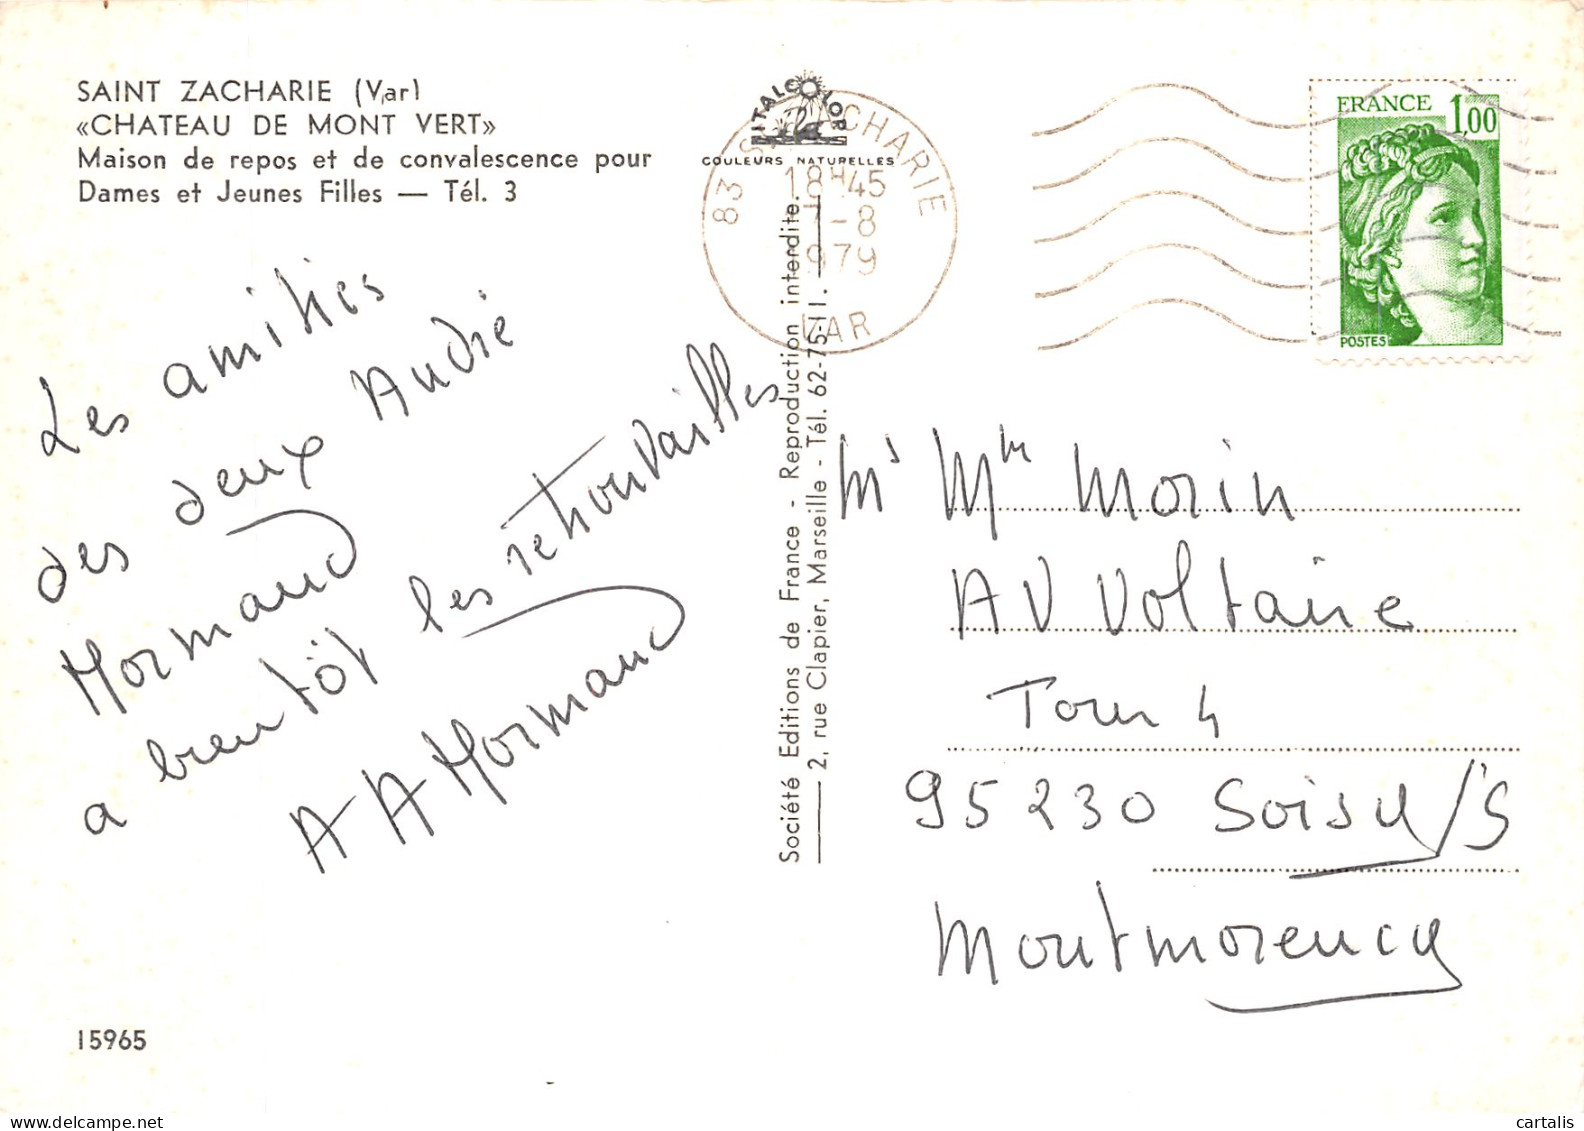 SAINT ZACHARIE (Var)
«CHATEAU DE MONT VERT»
Maison de repos et de convalescence pour
Dames et Jeunes Filles — Tél. 3
Les amitiés
des deux André
Mormand
a bientôt les retrouvailles
A A Mormand
15965
ITALCOLOR
COULEURS NATURELLES
83 ST ZACHARIE
18H45
-8
1979
VAR
Société Editions de France - Reproduction interdite.
2, rue Clapier, Marseille - Tél. 62-75-11.
FRANCE 1,00
POSTES
Mr Mme Morin
AV Voltaire
Tour 4
95230 Soisy/s
Montmorency
cartalis